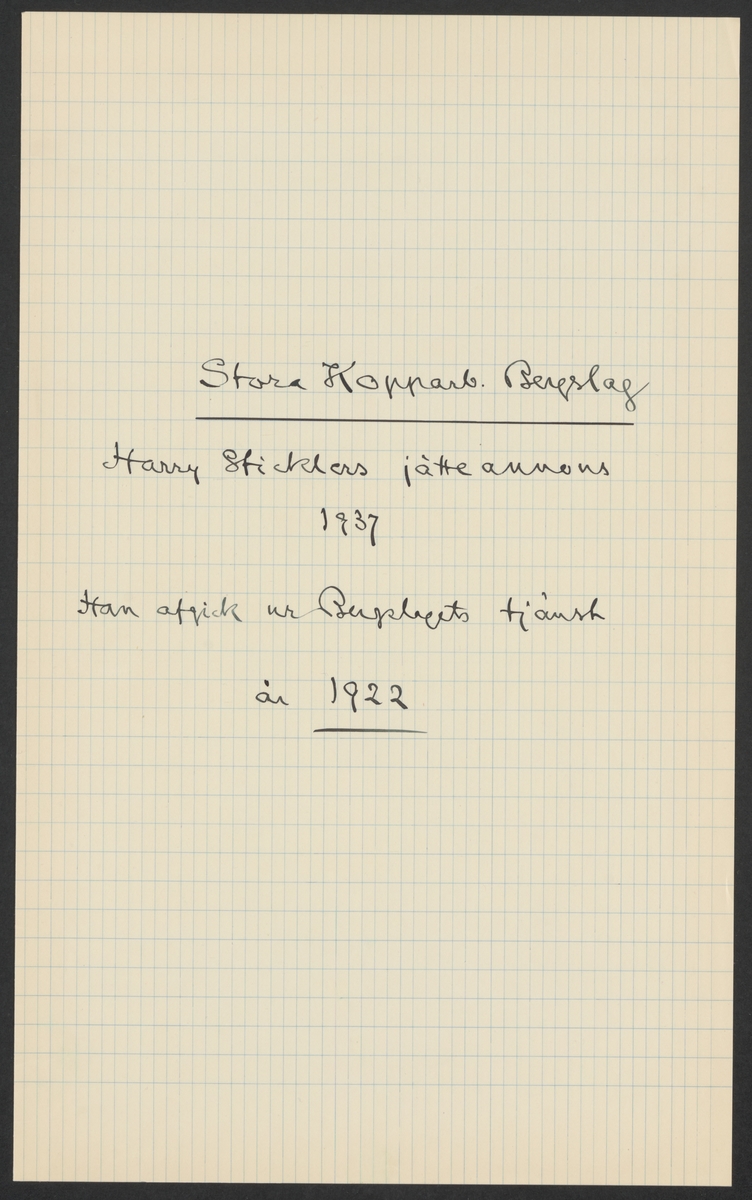 Stora Kopparb. Bergslag
Harry Sticklers jätteannons
1937
Han afgick ur Bergslagets tjänst
år 1922